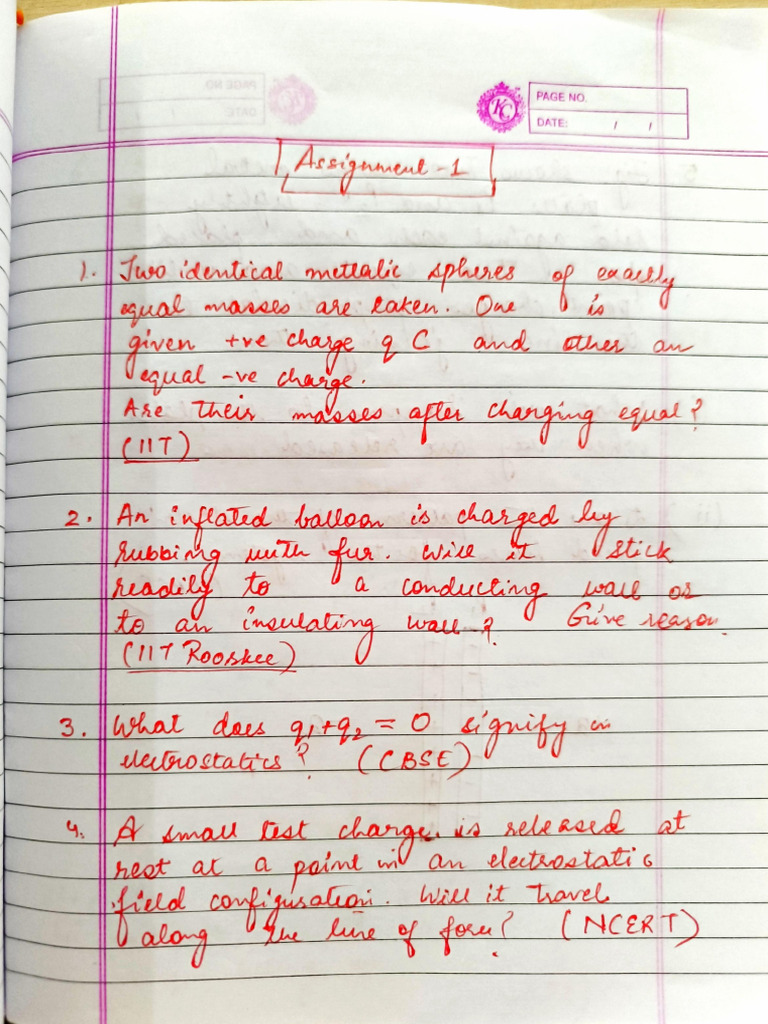 KC
PAGE NO.
DATE: / /
Assignment-1
1. Two identical mettalic spheres of exactly
equal masses are taken. One is
given +ve charge q C and other an
equal -ve charge.
Are their masses after charging equal?
(IIT)
2. An inflated balloon is charged by
rubbing with fur. Will it stick
readily to a conducting wall or
to an insulating wall? Give reason.
(IIT Roorkee)
3. What does q₁+q₂ = 0 signify in
electrostatics? (CBSE)
4. A small test charge is released at
rest at a point in an electrostatic
field configuration. Will it travel
along the line of force? (NCERT)